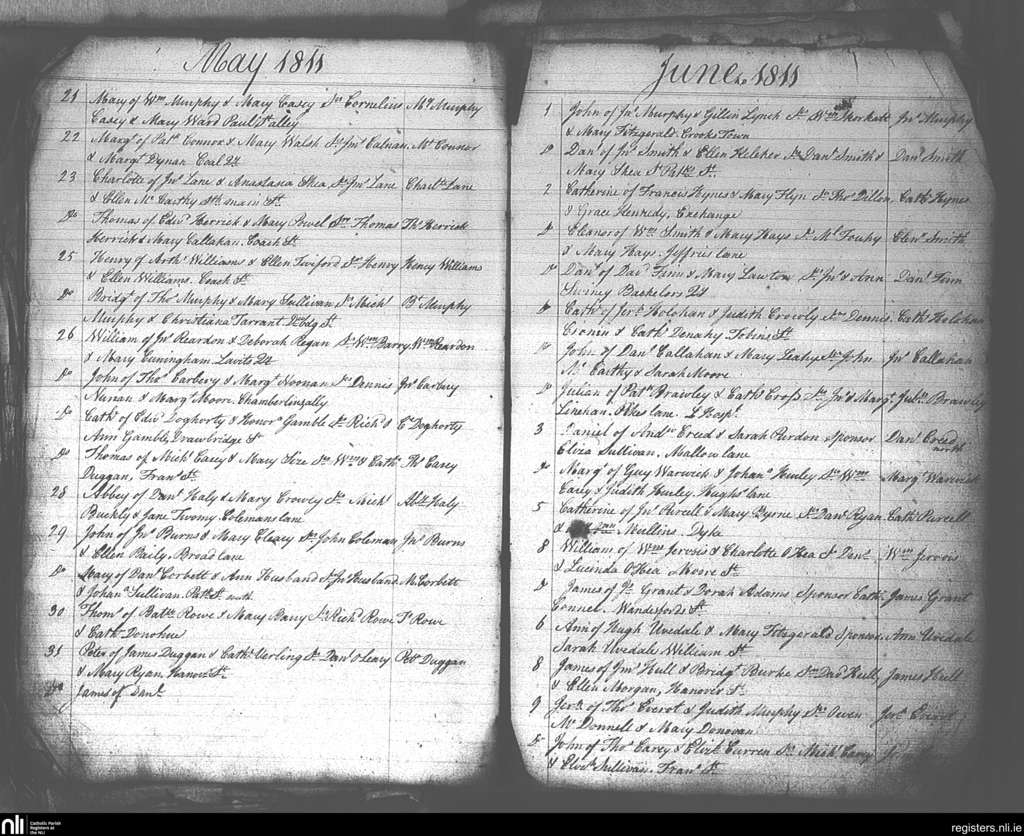 May 1811
21 Mary of Wm Murphy & Mary Casey Srs Cornelius My Murphy
Casey & Mary Ward Paul St alley
22 Margt of Patk Connor & Mary Walsh Srs Jno Calnan Mt Connor
& Margt Dynan Coal Qy
23 Charlotte of Jno Lane & Anastasia Shea Srs Jno Lane Charlte Lane
& Ellen Mc Carthy Sth main St.
Do Thomas of Edwd Herrick & Mary Powel Srs Thomas Ths Herrick
Herrick & Mary Callahan. Coach St
25 Henry of Arthr Williams & Ellen Twiford Sr Henry Henry Williams
& Ellen Williams. Coach St.
Do Bridgt of Thos Murphy & Mary Sullivan Srs Michl Bt Murphy
Murphy & Christiana Tarrant
26 William of Jno Reardon & Deborah Regan Srs Wm Barry Wm Reardon
& Mary Cuningham Lavits Qy
Do John of Thos Carbery & Margt Noonan Srs Dennis Jno Carbery
Nunan & Margt Moore. Chamberlins ally
Do Cathe of Edwd Dogherty & Honora Gamble Srs Richd & Ce Dogherty
Ann Gamble, Drawbridge St
Do Thomas of Michl Casey & Mary Size Srs Wm & Cathe Ths Casey
Duggan, Frans St.
28 Abbey of Danl Haly & Mary Crowly Srs Michl Abby Haly
Buckly & Jane Twomy. Colemans lane
29 John of Jno Burns & Mary Cleary Srs John Coleman Jno Burns
& Ellen Baily Broad lane
Do Mary of Danl Corbett & Ann Husband Srs Jno Husband M Corbett
& Johana Sullivan. Patks St.
30 Thoms of Batth Rowe & Mary Barry Srs Richd Rowe Ts Rowe
& Cathe Donohue
31 Peter of James Duggan & Cathe Verling Srs Danl O Leary Petr Duggan
& Mary Ryan, Hanovr St.
Do James of Danl
June 1811
1 John of Jno Murphy & Gillin Lynch Srs Wm Jno Murphy
& Mary Fitzgerald. Crooks Town
Do Danl of Jno Smith & Ellen Keleher Srs Danl Smith & Danl Smith
Mary Shea St
2 Catherine of Francis Hynes & Mary Flyn Srs Thos Dillon Cathe Hynes
& Grace Kennedy, Exchange
Do Eleanor of Wm Smith & Mary Hays Srs Ml Touhy Elenr Smith
& Mary Hays. Jeffries lane
Do Danl of Davd Finn & Mary Lawton Srs Jno & Ann Danl Finn
Swiney Bachelors Qy
Do Cathe of Jerh Holohan & Judith Crowly Srs Dennis Cathe Holohan
Cronin & Cathe Denahy Tobins St.
Do John of Danl Callahan & Mary Leahy Srs John Jno Callahan
Mc Carthy & Sarah Moore
Do Julian of Patk Brawley & Cathe Cross Srs Jno & Margt Julin Brawley
Linehan. Pikes lane. L Hospl.
3 Daniel of Andw Creed & Sarah Purdon Sponsor Danl Creed
Eliza Sullivan, Mallow lane north
Do Margt of Guy Warwick & Johana Hurley Srs Wm Margt Warwick
Carey & Judith Hurley. Hughs lane
5 Catherine of Jno Purcell & Mary Byrne Srs Danl Ryan Cathe Purcell
& Mullins. Dyke
8 William of Wm Jervois & Charlotte O Hea Srs Denl Wm Jervois
& Lucinda O Hea Moore St
Do James of Js Grant & Dorah Adams Sponsor Cathe James Grant
Connel. Wandesfords St.
6 Ann of Hugh Uvedale & Mary Fitzgerald Sponsor Ann Uvedale
Sarah Uvedale William St.
8 James of Jms Hull & Bridgt Burke Srs Davd Hull, James Hull
& Ellen Morgan, Hanover St.
9 Jerh of Thos Everot & Judith Murphy Srs Owen Jerh Everot
Mc Donnell & Mary Donovan
Do John of Thos Carey & Elizth Curren Srs Michl Carey
& Elizth Sullivan. Frans St.
nli
Catholic Parish
Registers at
the NLI
registers.nli.ie